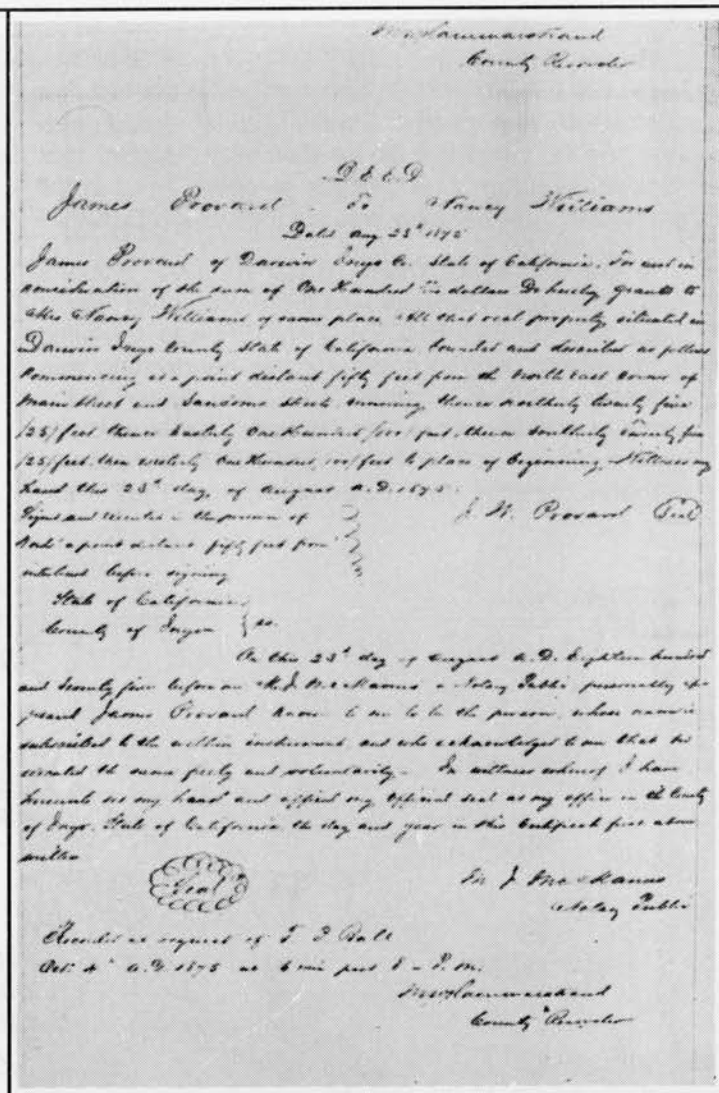 County Recorder
DEED
James Provard To Nancy Williams
Dated Aug 23d 1875
James Provard of Darwin Inyo Co. State of California. For and in
consideration of the sum of One Hundred dollars Do hereby grant to
Nancy Williams of same place. All that real property situated in
Darwin Inyo County State of California bounded and described as follows
Commencing at a point distant fifty feet from the North East corner of
Main Street and Streets running thence northerly twenty five
/25/ feet thence Easterly One Hundred /100/ feet, thence Southerly twenty five
/25/ feet, then westerly One Hundred /100/ feet to place of beginning. Witness my
hand this 23d day of August A.D. 1875.
Signed and executed in the presence of J. W. Provard Seal
Words "a point distant fifty feet from"
interlined before signing
State of California
County of Inyo } ss.
On this 23d day of August A.D. Eighteen hundred
and Seventy five before me M. J. McManus a Notary Public personally ap-
peared James Provard known to me to be the person whose name is
subscribed to the within instrument, and who acknowledged to me that he
executed the same freely and voluntarily. In witness whereof I have
hereunto set my hand and affixed my Official seal at my office in the County
of Inyo, State of California the day and year in this Certificate first above
written
Seal
M J McManus
Notary Public
Recorded at request of T. J. Ball
Oct. 4" A.D. 1875 at 6 min past 8 - P.M.
County Recorder